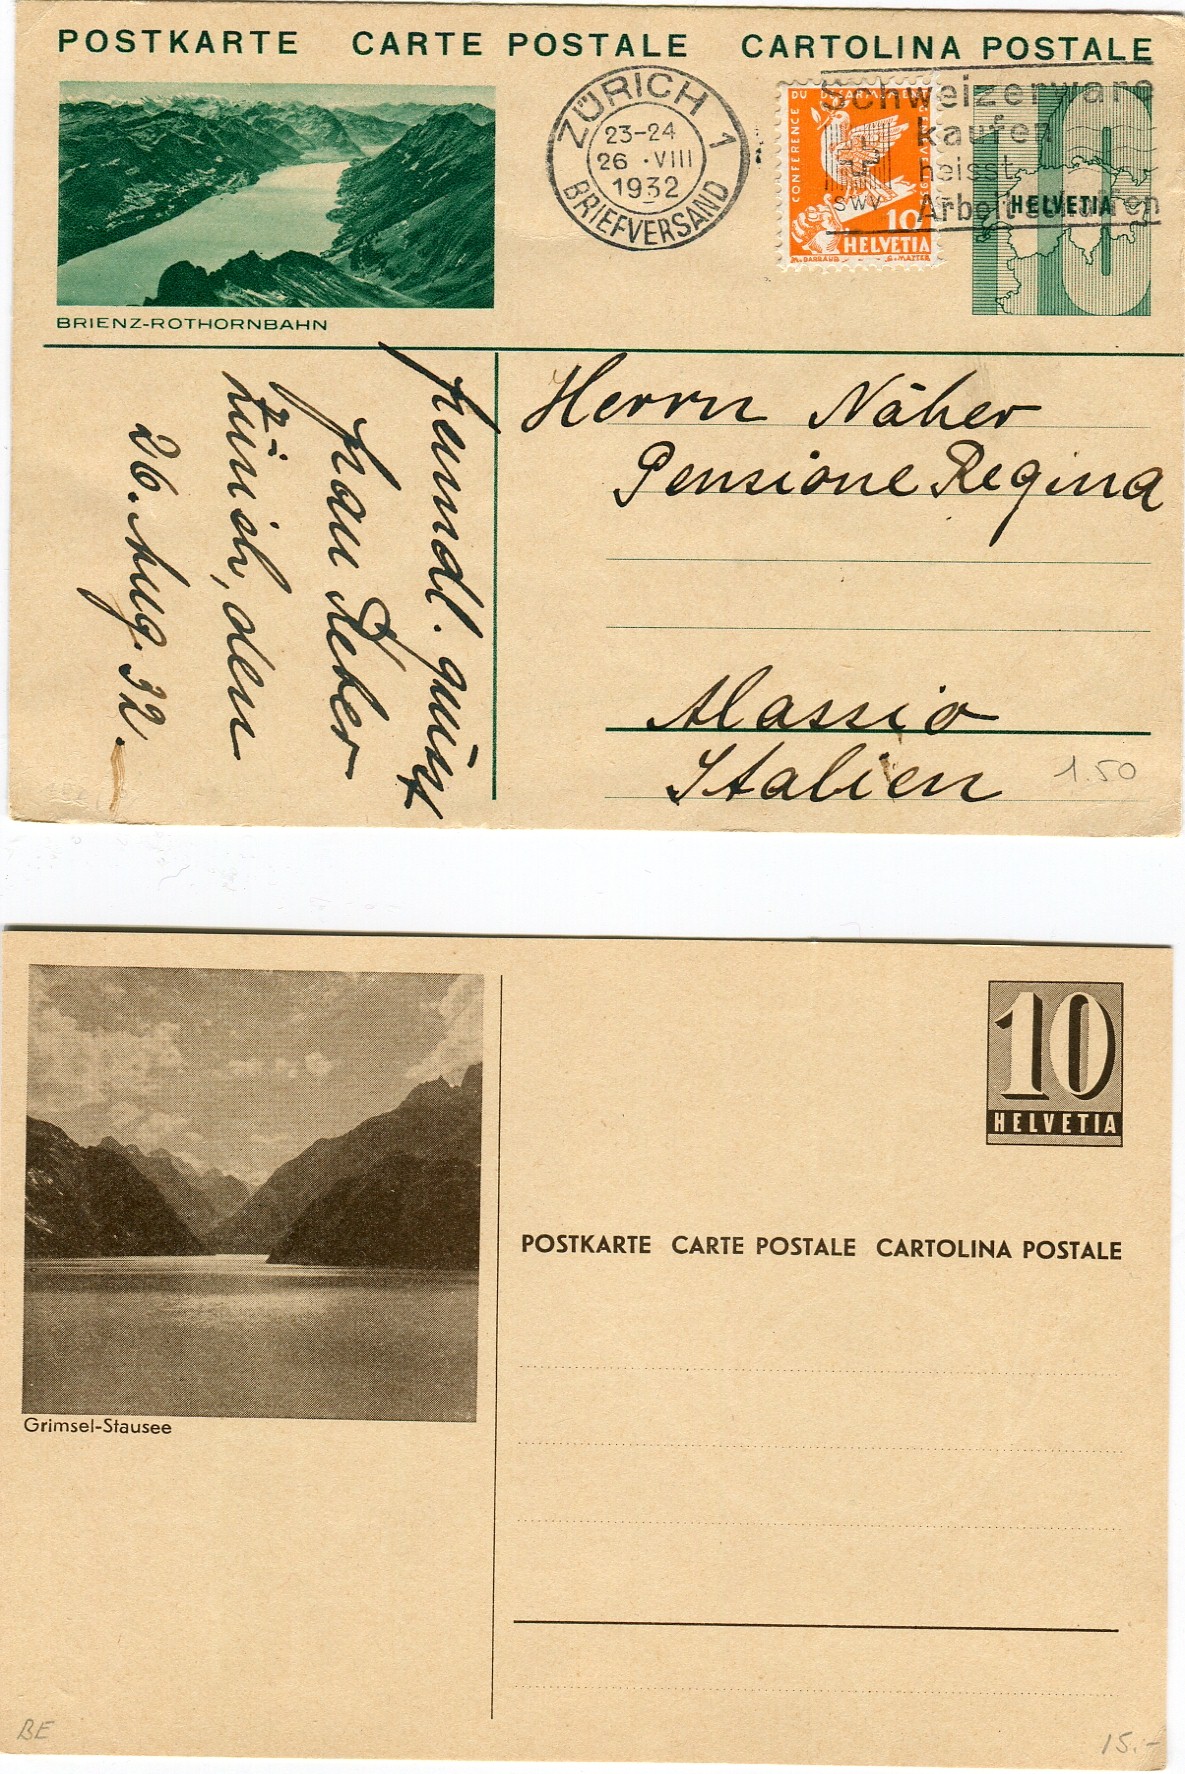 POSTKARTE CARTE POSTALE CARTOLINA POSTALE
BRIENZ-ROTHORNBAHN
ZÜRICH 1
23-24
26 · VIII
1932
BRIEFVERSAND
CONFERENCE DU DESARMEMENT
10
HELVETIA
M. BARRAUD
SWV
Schweizerware
kaufen
heisst
Arbeit
HELVETIA
Herrn Näher
Pensione Regina
Alassio
Italien
1.50
den
26. Aug. 32.
10
HELVETIA
POSTKARTE CARTE POSTALE CARTOLINA POSTALE
Grimsel-Stausee
BE
15.-